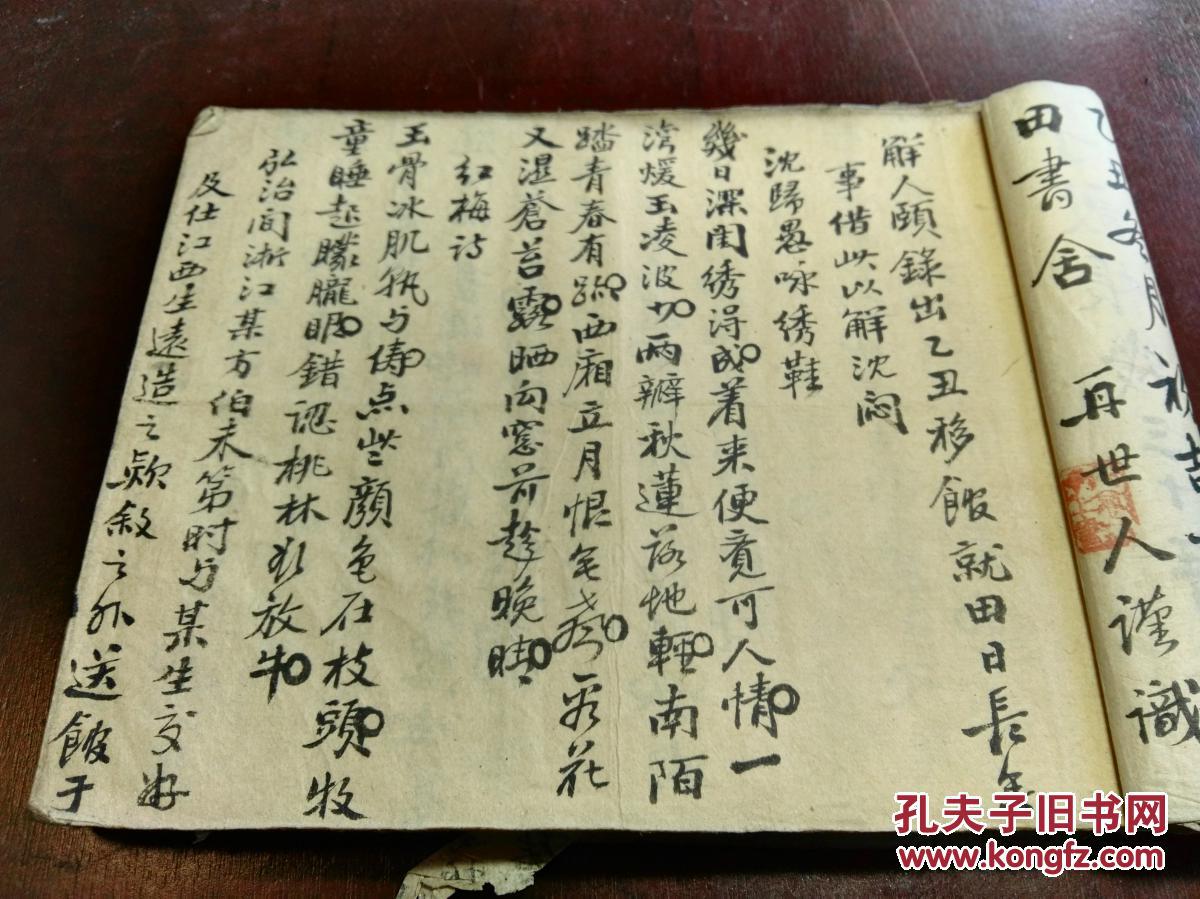 乙丑冬月
田書舍 再世人謹識
解人頤錄出乙丑移館就田日長無
事借此以解沈悶
沈歸愚咏绣鞋
幾日深閨绣得成着来便覺可人情一
湾煖玉凌波小两瓣秋蓮落地輕南陌
踏青春有跡西廂立月恨無声看花
又濕蒼苔露晒向窓前趁晚晴
红梅诗
玉骨冰肌孰与儔点些顔色在枝頭牧
童睡起矇朧眼錯認桃林欲放牛
弘治间淅江某方伯未第时与某生交好
及仕江西生遠造之欵敘之外送館于
孔夫子旧书网
www.kongfz.com